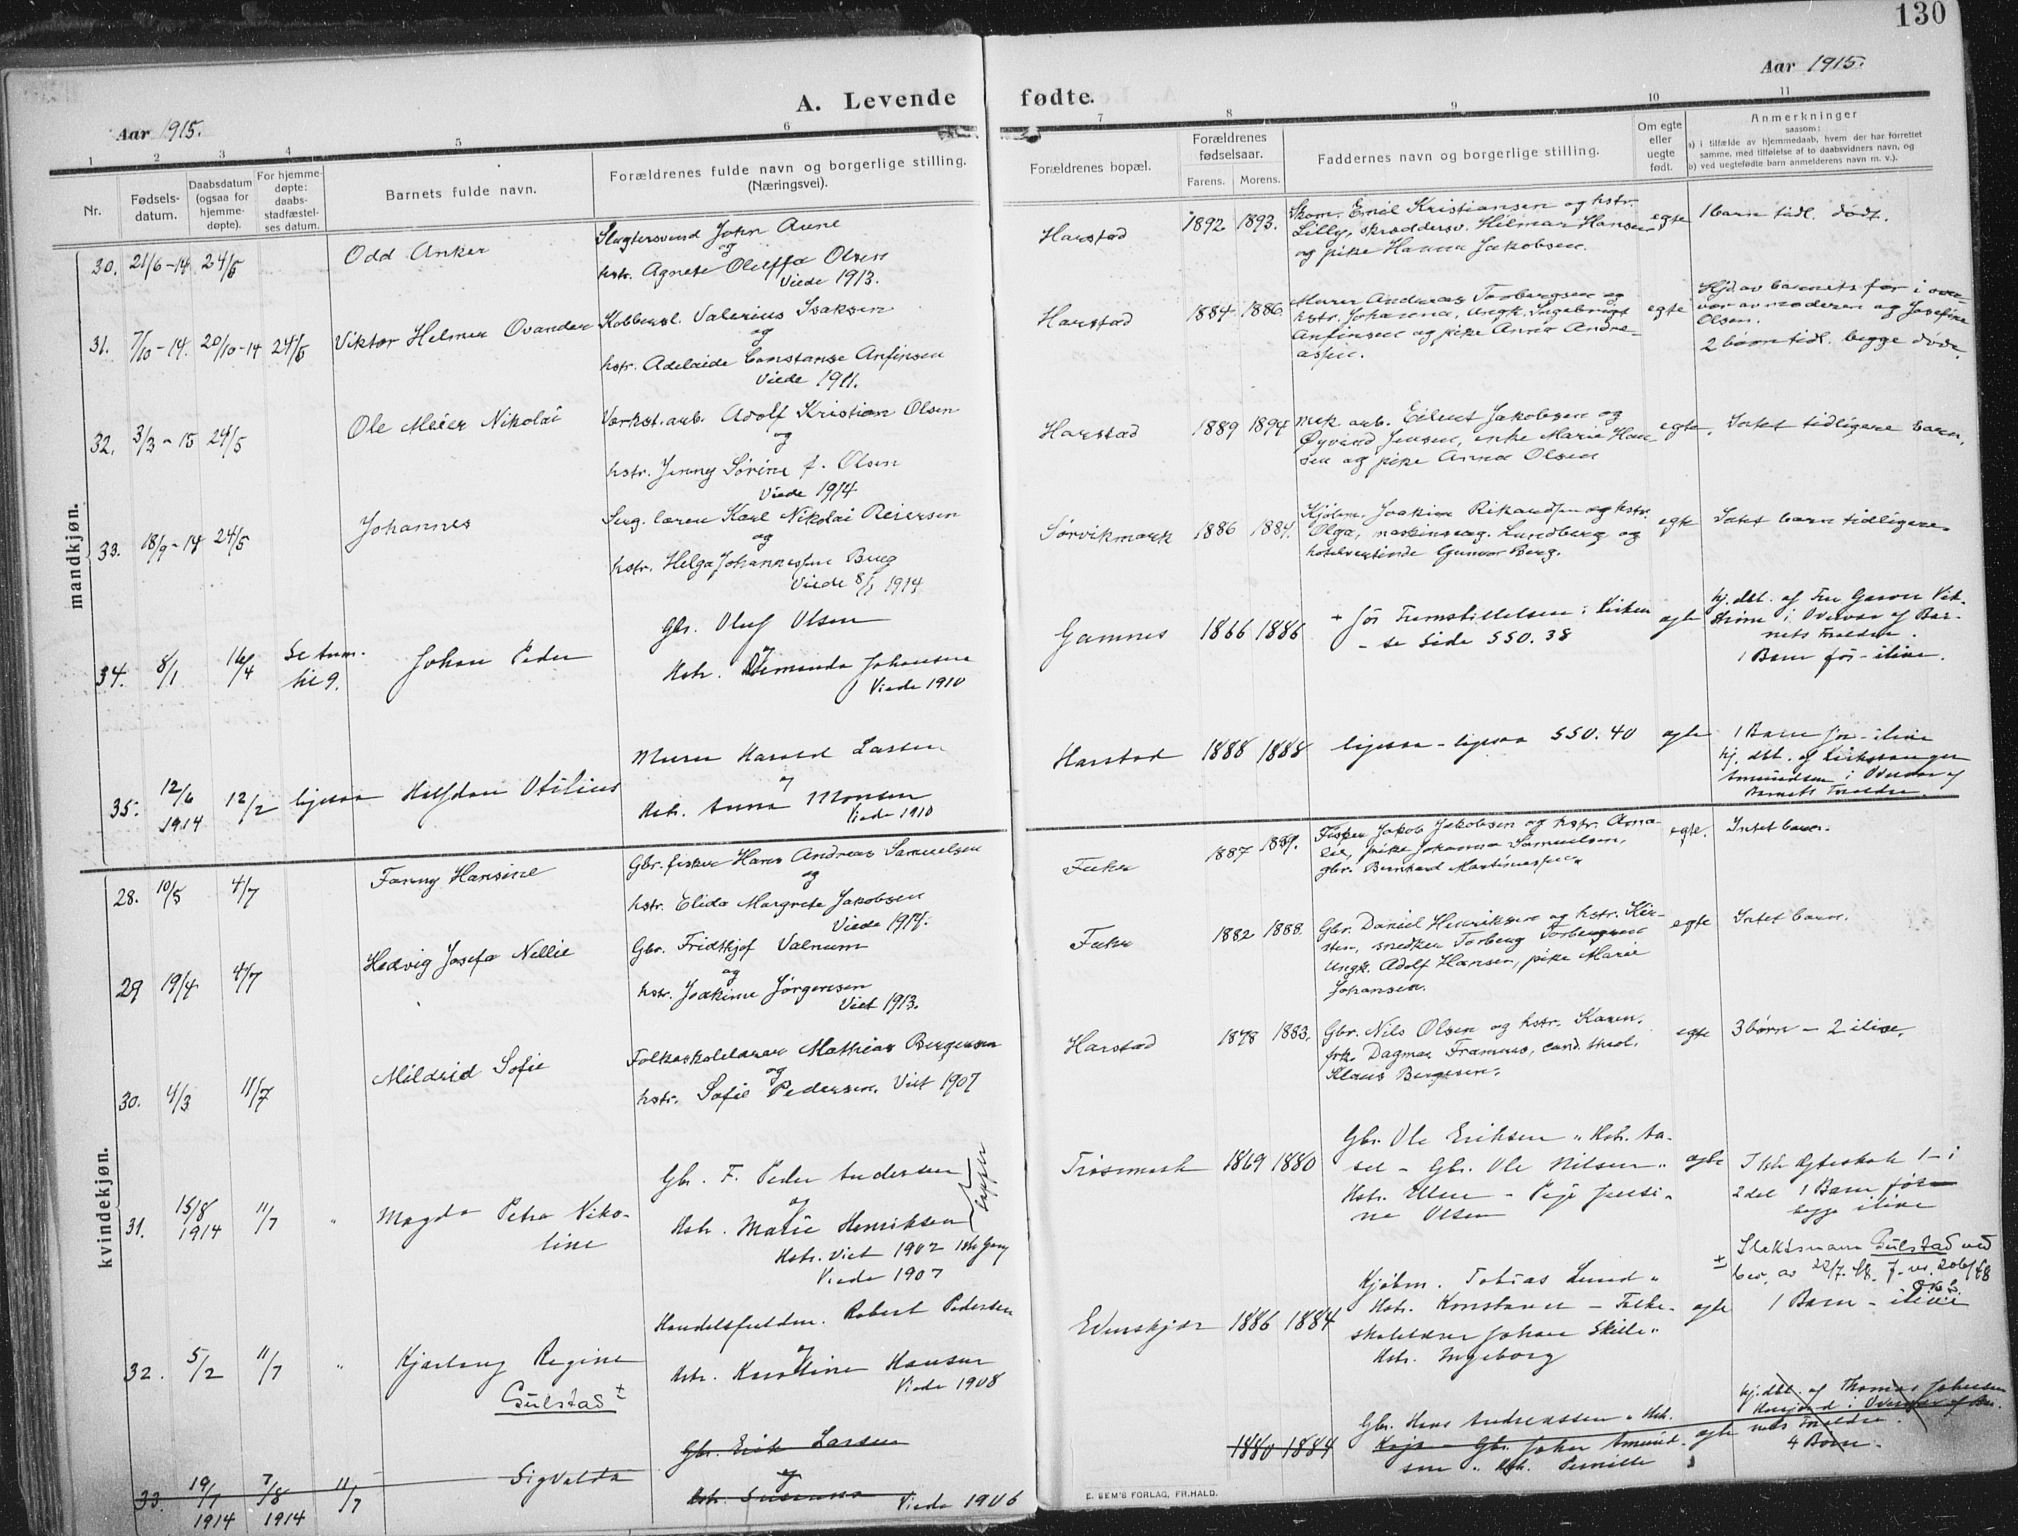 130
A. Levende fødte.
Aar 1915.
Aar 1915.
1 2 3 4 5 6 7 8 9 10 11
Nr.
Fødsels-
datum.
Daabsdatum
(ogsaa for
hjemme-
døpte).
For hjemme-
døpte:
daabs-
stadfæstel-
ses datum.
Barnets fulde navn.
Forældrenes fulde navn og borgerlige stilling.
(Næringsvei).
Forældrenes bopæl.
Forældrenes
fødselsaar.
Farens. Morens.
Faddernes navn og borgerlige stilling.
Om egte
eller
uegte
født.
Anmerkninger
saasom:
a) i tilfælde av hjemmedaab, hvem der har forrettet
samme, med tilføielse af to daabsvidners navn, og
b) ved uegtefødte barn anmelderens navn m. v.).
mandkjøn.
30. 21/6-14 24/5 Odd Anker
Slagtersvend John Aune
og
hstr. Agnete Oleffa Olsen
Viede 1913.
Harstad 1892 1893.
Skom. Emil Kristiansen og hstr.
Lilly, skræddersv. Hilmar Hansen
og pike Hanna Jakobsen.
egte
1 barn tidl. dødt.
31. 7/10-14. 20/10-14 24/5 Viktor Helmer Ovander
Kobbersl. Valerius Isaksen
og
hstr. Adelaide Constanse Arfinsen
Viede 1911.
Harstad 1884 1886.
Murer Andreas Torbergsen og
hstr. Johanna, ungk. Ingebrigt
Anfinsen og pike Anna Andre-
aspen.
egte
Hjd. av barnets far i over-
vær av moderen og Josefine
Olsen.
2 børn tidl. begge døde.
32. 3/3-15 24/5 Ole Meier Nikolai
Verkst. arb. Adolf Kristian Olsen
og
hstr. Jenny Sørine f. Olsen
Viede 1914
Harstad 1889 1894
mek. arb. Eilert Jakobsen og
Øyvind Jensen, enke Marie Han-
sen og pike Anna Olsen
egte.
Intet tidligere barn.
33. 18/9-14 24/5 Johannes
Serg. lærer Karl Nikolai Reiersen
og
hstr. Helga Johannessen Berg
Viede 8/1 1914
Sørvikmark 1886 1884.
Kjøbm. Joakim Rikardsen og hstr.
Olga, maskinseg. Lundberg og
hotelvertinde Gunvor Berg.
egte
Intet barn tidligere.
34. 8/1 16/4 Se anm.
til 9. Johan Peder
Gbr. Oluf Olsen
og
Hstr. Johansen
Viede 1910
Gamnes 1866 1886
+ for Fremstillelsen i Kirken
- se Side 550. 38
egte
hj. dbt. af Fru
i Overvær af Bar-
nets Foreldre.
1 Barn før - ilive.
35. 12/6
1914 12/2 ligesaa Halfdan Otilius
Murer Harald Larsen
og
Hstr. Anna Monsen
Viede 1910
Harstad 1888 1888
ligesaa - ligesaa 550. 40
egte
1 Barn før - ilive
hj. dbt. af Kirkesanger
Amundsen i Overvær af
Barnets Foreldre.
kvindekjøn.
28. 10/5 4/7 Fanny Hansine
Gbr. fisker Hans Andreas Samuelsen
og
hstr. Elida Margrete Jakobsen
Viede 1914.
Fuhr 1887 1889.
Fisker Jakob Jakobsen og hstr. Ama-
lie, pike Johanna Samuelsen,
gbr. Bernhard Martinussen
egte.
Intet barn.
29 19/4 4/7 Hedvig Josefa Nellie
Gbr. Fridtkjof Valnum
og
hstr. Joakime Jørgensen
Viet 1913.
1882 1888.
Gbr. Daniel Henriksen og hstr. Kir-
sten, snedker Torberg Torbergsen
Ungk. Adolf Hansen, pike Marie
Johansen.
egte
Intet barn.
30. 4/3 11/7 Mildrid Sofie
Folkeskolelærer Mathias Bergersen
og
hstr. Sofie Pedersen. Viet 1907
Harstad 1878 1883.
Gbr. Nils Olsen og hstr. Karen,
frk. Dagmar Framnes, cand. theol.
Klaus Bergesen.
egte
3 børn - 2 ilive.
31. 15/8
1914 11/7 " Magda Petra Niko-
line
Gbr. F. Peder Andersen
og
Hstr. Marie Henriksen
Lapper
Hstr. Viet 1902 1ste Gang
Viede 1907
1869 1880
Gbr. Ole Eriksen " Hstr. Aa-
sel - Gbr. Ole Nilsen "
Hstr. Ellen - Pige Jensi-
ne Olsen
egte
I 1ste Egteskab 1 - i
2det 1 Barn før
begge ilive
32. 5/2 11/7 " Kjærlaug Regine
Gulstad ±
Handelsfuldm. Robert Pedersen
og
Hstr. Karoline Hansen
Viede 1908
Evenskjær 1886 1884
Kjøbm. Tobias Lund "
Hstr. Konstance - Folke-
skolelærer Johan Skille "
Hstr. Ingeborg
egte
± Slektsnavn Gulstad ved
bev. av 22/7.
1 Barn - ilive
33. 19/7
1914 7/8
1914 11/7 Sigvalda
Gbr. Erik Larsen
og
Hstr. Susanna
Viede 1906
1880 1884
Gbr. Hans Andreassen " Hst.
Kaja - Gbr. Johan Amund-
sen " Hst. Pernille
egte
hj. dbt. af Thomas Johnsen
i Overvær af Bar-
nets Foreldre.
4 Børn -
E. SEM'S FORLAG, FR.HALD.